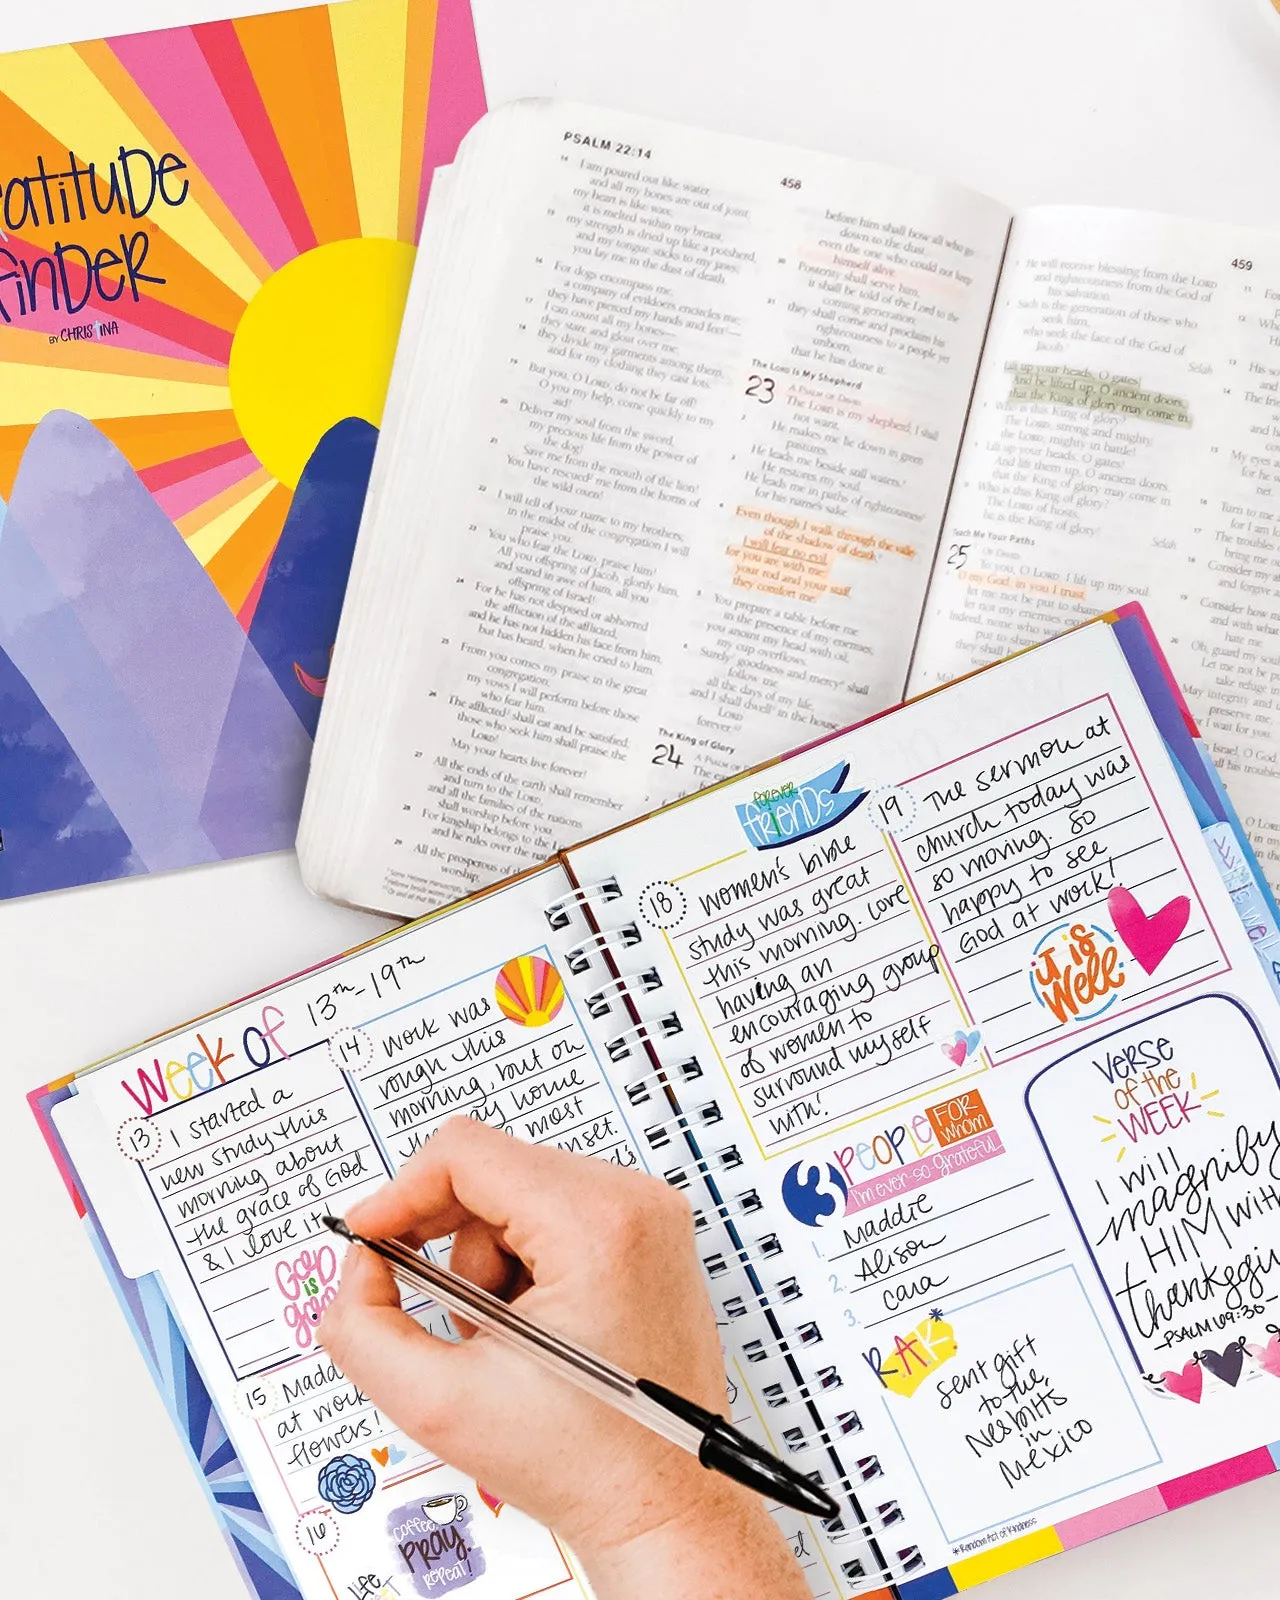 atitude
finder®
BY CHRISTINA
PSALM 22:14
458
14 I am poured out like water,
and all my bones are out of joint;
my heart is like wax;
it is melted within my breast;
15 my strength is dried up like a potsherd,
and my tongue sticks to my jaws;
you lay me in the dust of death.
16 For dogs encompass me;
a company of evildoers encircles me;
they have pierced my hands and feet
17 I can count all my bones—
they stare and gloat over me;
18 they divide my garments among them,
and for my clothing they cast lots.
19 But you, O LORD, do not be far off!
O you my help, come quickly to my
aid!
20 Deliver my soul from the sword,
my precious life from the power of
the dog!
21 Save me from the mouth of the lion!
You have rescued me from the horns of
the wild oxen!
22 I will tell of your name to my brothers;
in the midst of the congregation I will
praise you:
23 You who fear the LORD, praise him!
All you offspring of Jacob, glorify him,
and stand in awe of him, all you
offspring of Israel!
24 For he has not despised or abhorred
the affliction of the afflicted,
and he has not hidden his face from him,
but has heard, when he cried to him.
25 From you comes my praise in the great
congregation;
my vows I will perform before those
who fear him.
26 The afflicted shall eat and be satisfied;
those who seek him shall praise the
LORD!
May your hearts live forever!
27 All the ends of the earth shall remember
and turn to the LORD,
and all the families of the nations
shall worship before you.
28 For kingship belongs to the
and he rules over the
29 All the prosperous of
worship;
before him shall bow all who go
down to the dust,
even the one who could not keep
himself alive.
30 Posterity shall serve him;
it shall be told of the Lord to the
coming generation;
31 they shall come and proclaim his
righteousness to a people yet
unborn,
that he has done it.
The LORD Is My Shepherd
23 A PSALM OF DAVID.
The LORD is my shepherd; I shall
not want.
2 He makes me lie down in green
pastures.
He leads me beside still waters.
3 He restores my soul.
He leads me in paths of righteousness
for his name's sake.
4 Even though I walk through the valley
of the shadow of death,
I will fear no evil,
for you are with me;
your rod and your staff,
they comfort me.
5 You prepare a table before me
in the presence of my enemies;
you anoint my head with oil;
my cup overflows.
6 Surely goodness and mercy shall
follow me
all the days of my life,
and I shall dwell in the house
LORD
forever.
The King of Glory
24 A PSALM OF
459
He will receive blessing from the LORD
and righteousness from the God of
his salvation.
Such is the generation of those who
seek him,
who seek the face of the God of
Jacob. Selah
Lift up your heads, O gates!
And be lifted up, O ancient doors,
that the King of glory may come in.
Who is this King of glory?
The LORD, strong and mighty,
the LORD, mighty in battle!
Lift up your heads, O gates!
And lift them up, O ancient doors,
that the King of glory may come in.
Who is this King of glory?
The LORD of hosts,
he is the King of glory! Selah
Teach Me Your Paths
25 OF DAVID.
To you, O LORD, I lift up my soul.
O my God, in you I trust;
let me not be put to shame;
let not my enemies
Indeed, none who
put to shame;
they shall
Week of 13th-19th
13 I started a
new study this
morning about
the grace of God
& I love it!
GOD
is
good
14 work was
rough this
morning, but on
home
most
sunset.
15
at work
flowers!
16
coffee.
pray.
repeat!
Life
forever
friends
18 women's bible
study was great
this morning. Love
having an
encouraging group
of women to
surround myself
with!
19 The sermon at
church today was
so moving. So
happy to see
God at work!
it is
well
3 People FOR whom
I'm ever-so-grateful
1. Maddie
2. Alison
3. Cara
R.A.K*
sent gift
to the
Nesbitts
in
Mexico
*Random Act of Kindness
Verse
of the
WEEK
I will
magnify
HIM with
thanksgiv
-PSALM 69:30-